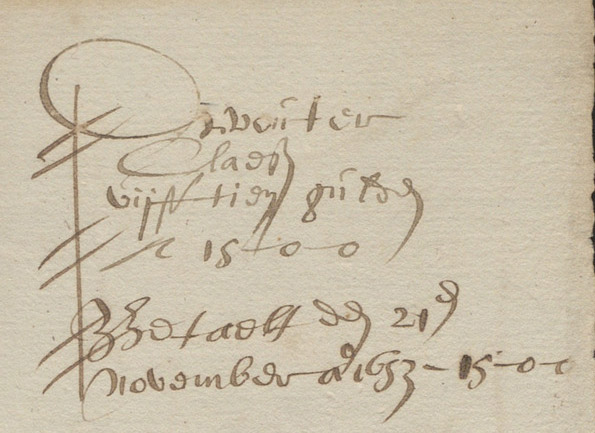 Wouter
Claesz
vijfftien gulden
15-0-0
Betaelt den 21en
November ao 1653 - 15-0-0